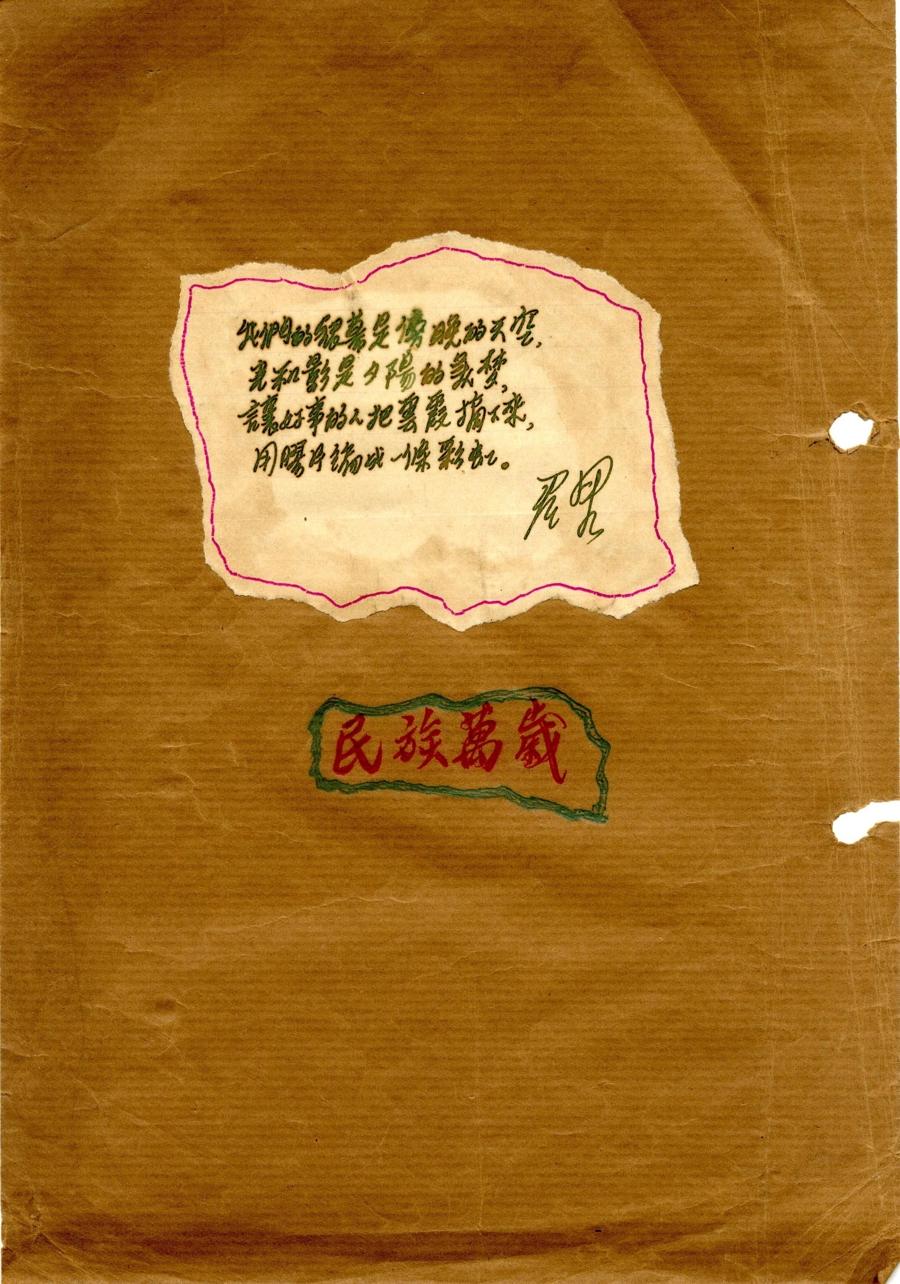 我們的銀幕是傍晚的天空,
光和影是夕陽的義夢,
讓好事的人把雲霞摘下來,
用膠片編成一條彩虹。
民族萬歲